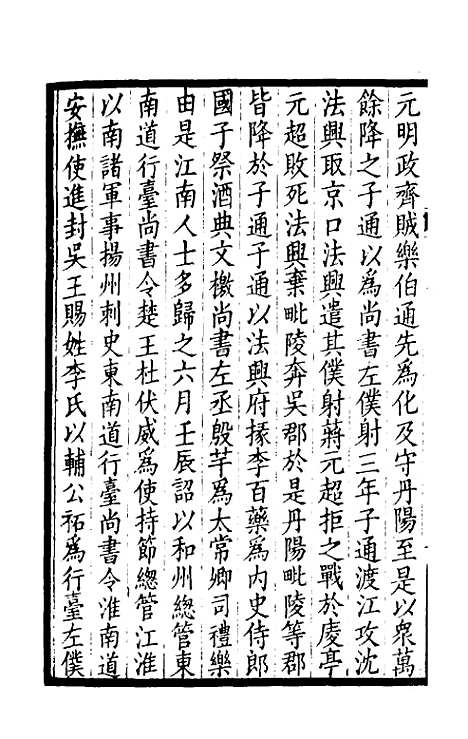 元明政齊賊樂伯通先為化及守丹陽至是以衆萬
餘降之子通以為尚書左僕射三年子通渡江攻沈
法興取京口法興遣其僕射蔣元超拒之戰於慶亭
元超敗死法興棄毗陵奔吳郡於是丹陽毗陵等郡
皆降於子通子通以法興府掾李百藥為内史侍郎
國子祭酒典文檄尚書左丞殷芊為太常卿司禮樂
由是江南人士多歸之六月壬辰詔以和州總管東
南道行臺尚書令楚王杜伏威為使持節總管江淮
以南諸軍事揚州刺史東南道行臺尚書令淮南道
安撫使進封吳王賜姓李氏以輔公祏為行臺左僕